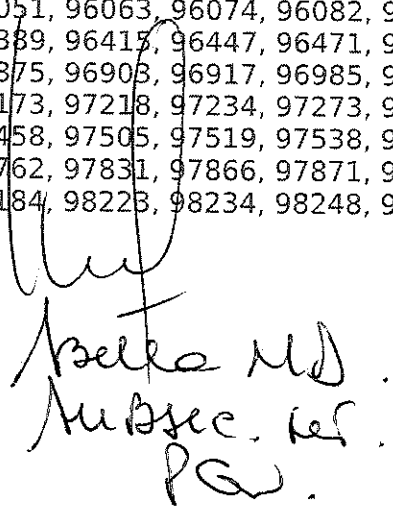 051, 96063, 96074, 96082, 9
389, 96415, 96447, 96471, 9
875, 96903, 96917, 96985, 9
173, 97218, 97234, 97273, 9
458, 97505, 97519, 97538, 9
762, 97831, 97866, 97871, 9
184, 98223, 98234, 98248, 9
Bello MD.
Subsec.
PGN.